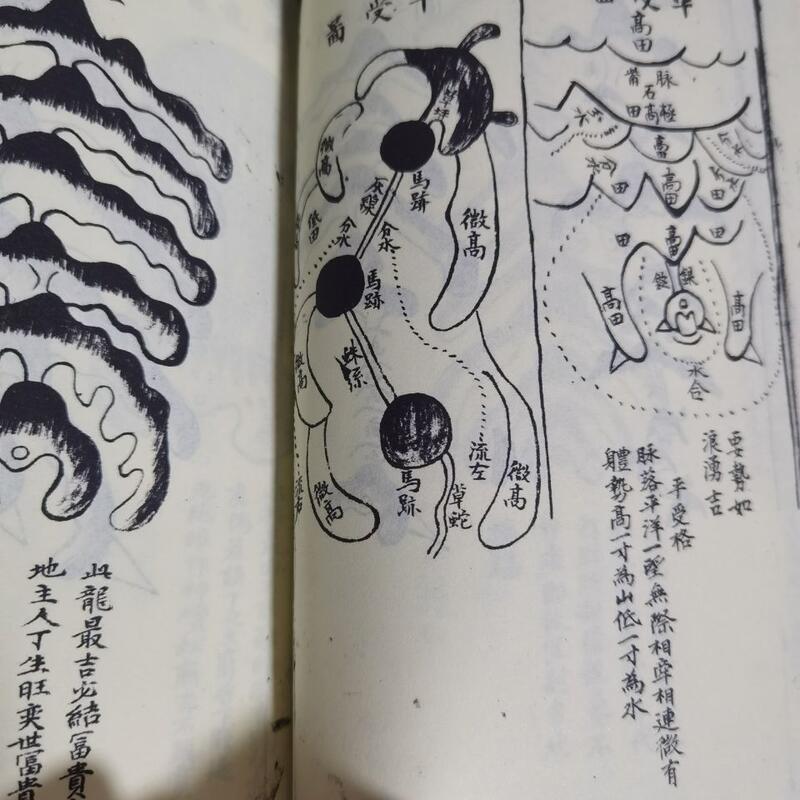 高田
脉
帶石
田高極
分水
高
田
高田
田
田
高田
田
高田
高田
水合
要勢如
浪湧吉
平受格
脉落平洋一望無際相牽相連微有
體勢高一寸為山低一寸為水
受
草坪
微高
馬跡
微高
分水
分水
低田
馬跡
蛛絲
微高
馬跡
草蛇
流左
微高
微高
流右
此龍最吉必結富貴
地主人丁生旺奕世富貴